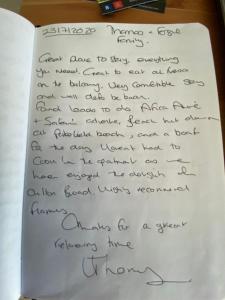 23/7/2020 Thomas + Fergie
Family.
Great place to stay, everything
you Need. Great to eat al fresco
on the balcony. Very comfortable stay
and will defo be back.
Found loads to do Africa Alive
+ Safari adventure, Beach hut down
at Pakefield beach, and a boat
for the day. Havent had to
Cook in the apartment as we
have enjoyed the delights of
Oulton Broad. Highly recommend
Thanks for a great
relaxing time
Thomas